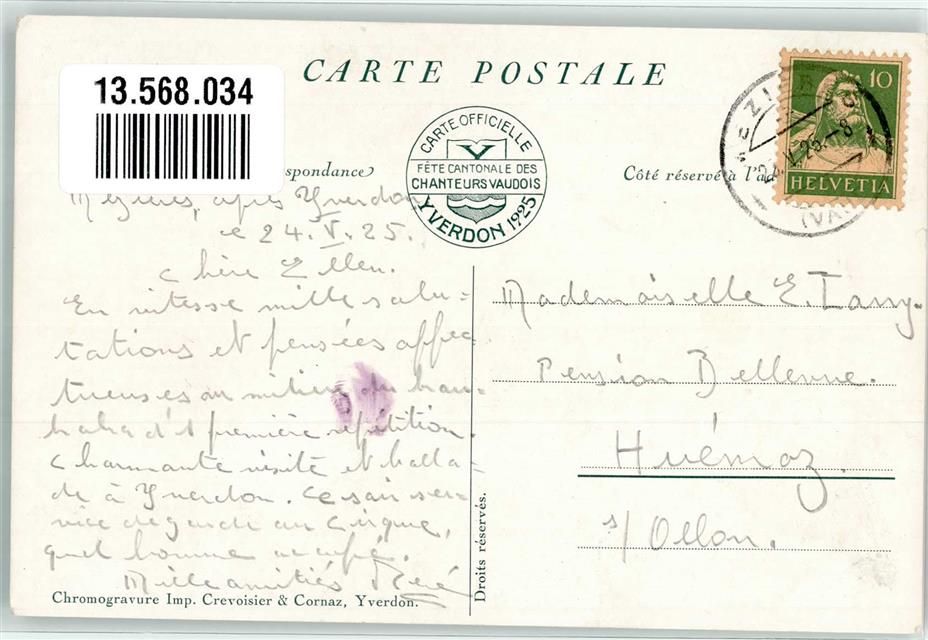 CARTE POSTALE
13.568.034
CARTE OFFICIELLE
FÊTE CANTONALE DES
CHANTEURS VAUDOIS
YVERDON 1925
10
HELVETIA
24.V.25.–8
(VA
spondance
Côté réservé à l'ad
après Yverdon
le 24.V.25.
Chère Ellen.
En vitesse mille salu-
tations et pensées affec
tueuses au milieu du brou-
haha d'1 première répétition.
Charmante visite et balla-
de à Yverdon. Ce soir ser-
vice de garde au cirque,
quel homme occupé.
Mille amitiés René
Mademoiselle E.
Pension Bellevue.
Huémoz.
s/Ollon.
Droits réservés.
Chromogravure Imp. Crevoisier & Cornaz, Yverdon.